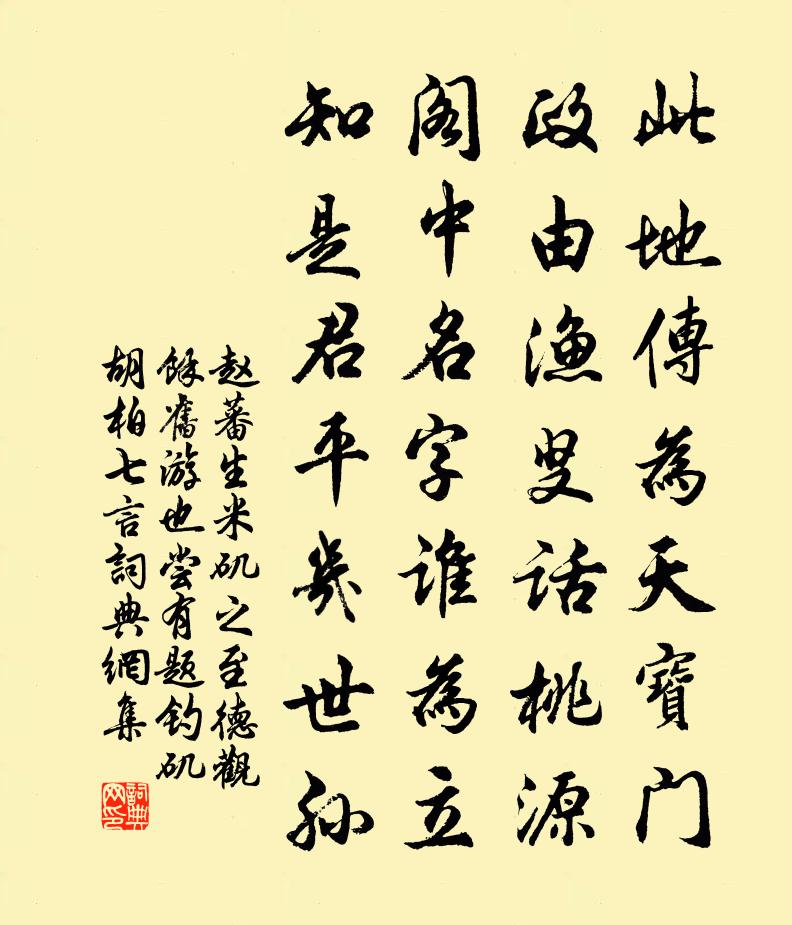 此地傳為天寶門
政由漁叟話桃源
阁中名字誰為立
知是君平幾世孙
赵蕃生米矶之至德觀
餘舊游也尝有题钓矶
胡柏七言詞典網集
詞典网印